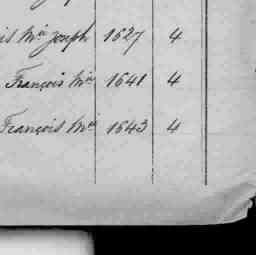 is Mie Joseph 1627 4
François Mie 1641 4
François Mie 1643 4